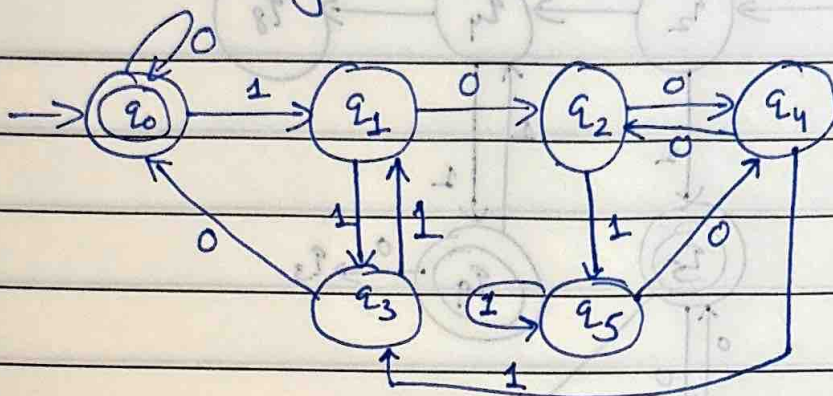 0
q0 1 q1 0 q2 0 q4
0
1 1 1
0 0
q3 1 q5
1